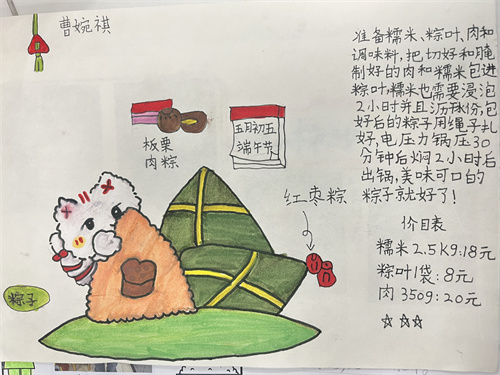 曹婉祺
准备糯米、粽叶、肉和
调味料,把切好和腌
制好的肉和糯米包进
粽叶,糯米也需要浸泡
2小时并且沥水份,包
好后的粽子用绳子扎
好,电压力锅压30
分钟后焖2小时后
出锅,美味可口的
粽子就好了!
板栗
肉粽
五月初五
端午节
红枣粽
粽子
价目表
糯米2.5Kg:18元
粽叶1袋:8元
肉350g:20元